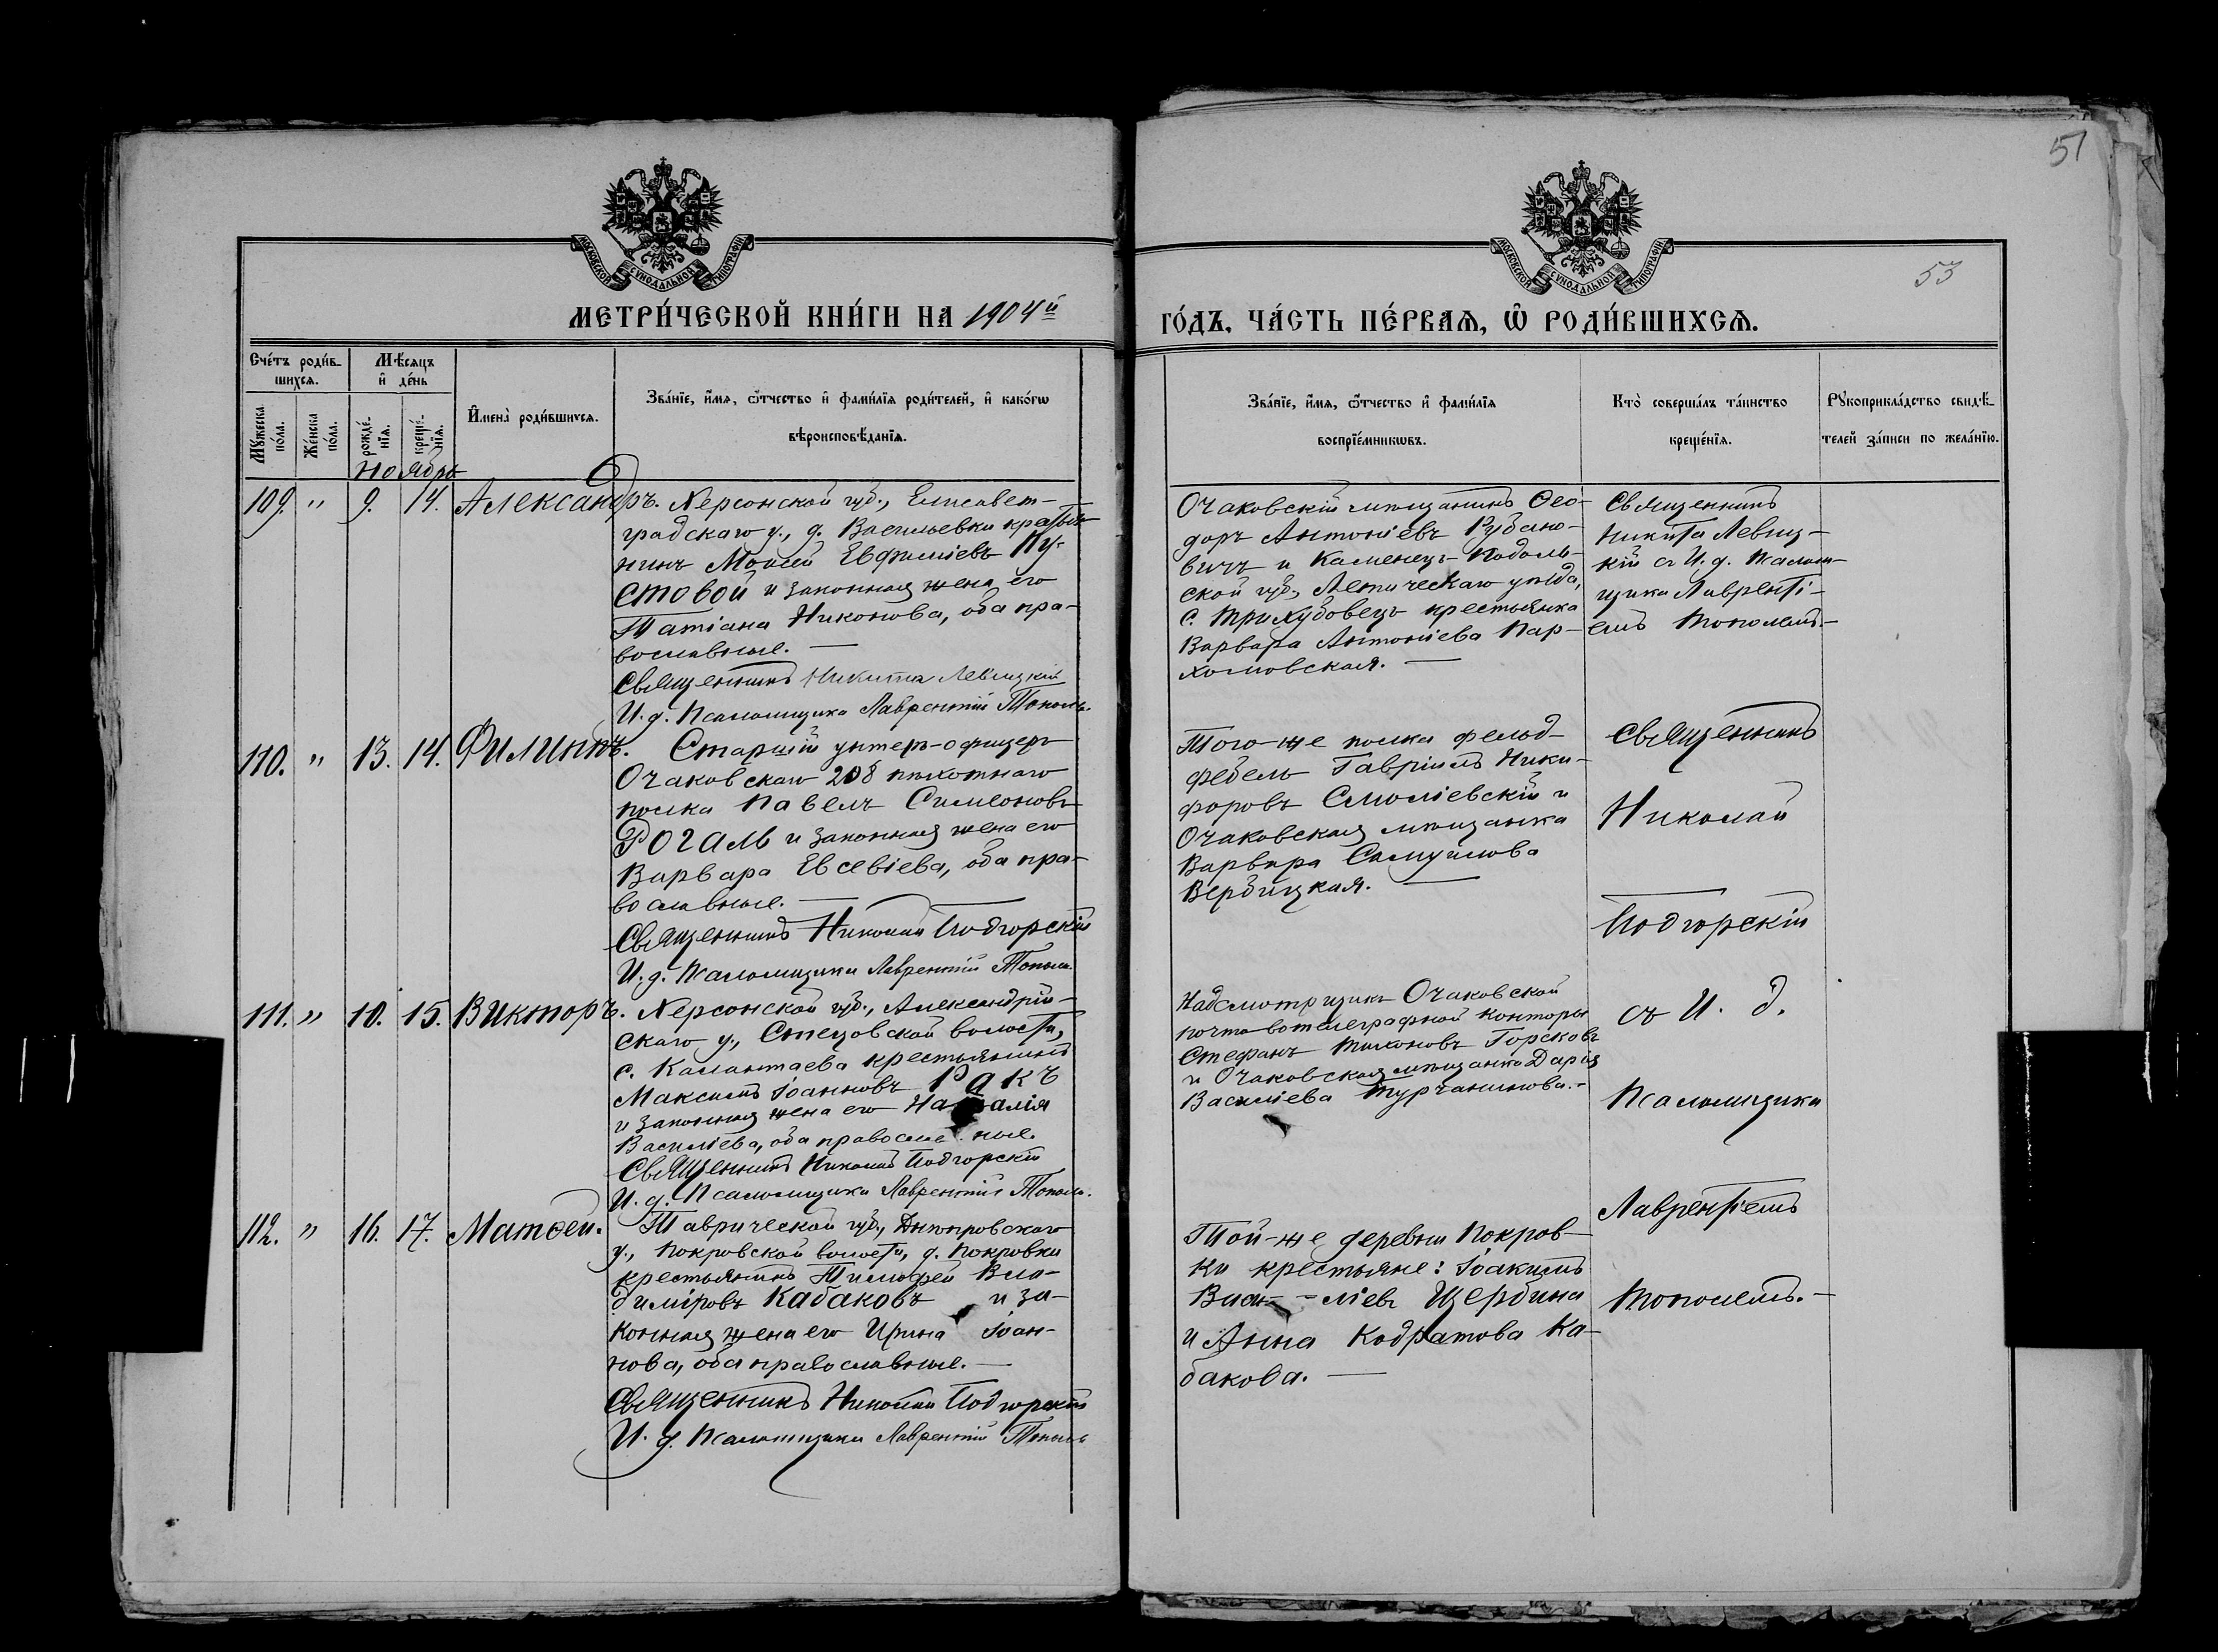 51
53
МОСКОВСКОЙ СѴНОДАЛЬНОЙ ТИПОГРАФІИ
МОСКОВСКОЙ СѴНОДАЛЬНОЙ ТИПОГРАФІИ
МЕТРИ́ЧЕСКОЙ КНИ́ГИ НА 1904й
ГО́ДЪ, ЧА́СТЬ ПЕ́РВАѦ, Ѽ РОДИ́ВШИХСѦ.
Сче́тъ роди́в-
шихся.
Мꙋ́жеска по́ла.
Же́нска по́ла.
Мѣсяцъ
и҆ де́нь
рожде́-
нїя.
креще́-
нїя.
И҆мена̀ роди́вшихся.
Зва́нїе, и҆́мя, ѻ҆́тчество и҆ фами́лїя роди́телей, и҆ како́гѡ
вѣроисповѣ́данїя.
Зва́нїе, и҆́мя, ѻ҆́тчество и҆ фами́лїя
воспрїе́мникѡвъ.
Кто̀ соверша́лъ та́инство
креще́нїя.
Рꙋкоприкла́дство свидѣ́-
телей за́писи по жела́нїю.
Ноябрь
109. " 9. 14. Александръ.
Херсонской губ., Елисавет-
градскаго у., д. Васильевки крестья-
нинъ Моисей Евфиміевъ Пу-
стовой и законная жена его
Татіана Никонова, оба пра-
вославные. —
Священникъ Никита Левицкій
И. д. Псаломщика Лаврентій Тополь.
Очаковскій мѣщанинъ Ѳео-
доръ Антоніевъ Рубано-
вичъ и Каменецъ-Подоль-
ской губ., Летическаго уѣзда,
с. Трихубовецъ крестьянка
Варвара Антоніева Пар-
хомовская. —
Священникъ
Никита Левиц-
кій съ И. д. Псалом-
щика Лаврентi-
емъ Тополемъ.-
110. " 13. 14. Филиппъ.
Старшій унтеръ-офицеръ
Очаковскаго 208 пѣхотнаго
полка Павелъ Симеоновъ
Рогаль и законная жена его
Варвара Евсевіева, оба пра-
вославные. —
Священникъ Николай Подгорскій
И. д. Псаломщика Лаврентій Тополь.
Того-же полка фельд-
фебель Гавріилъ Ники-
форовъ Смоліевскій и
Очаковская мѣщанка
Варвара Самуилова
Вербицкая. —
Священникъ
Николай
Подгорскій
111. " 10. 15. Викторъ.
Херсонской губ., Александрій-
скаго у., Стецовской волости,
с. Калантаева крестьянинъ
Максимъ Іоанновъ Ракъ
и законная жена его Наталія
Василіева, оба православные.
Священникъ Николай Подгорскій
И. д. Псаломщика Лаврентій Тополь.
Надсмотрщикъ Очаковской
почтовотелеграфной конторы
Стефанъ Тихоновъ Горсковъ
и Очаковская мѣщанка Дарія
Василіева Турчанинова.-
съ И. д.
Псаломщика
Лаврентiемъ
112. " 16. 17. Матѳей.
Таврической губ., Днѣпровскаго
у., Покровской волости, д. Покровки
крестьянинъ Тимофей Вла-
диміровъ Кабаковъ и за-
конная жена его Ирина Іоан-
нова, оба православные. —
Священникъ Николай Подгорскій
И. д. Псаломщика Лаврентій Тополь
Той-же деревни Покров-
ки крестьяне: Іоакимъ
Васи--ліевъ Щербина
и Анна Кодратова Ка-
бакова. —
Тополемъ.-